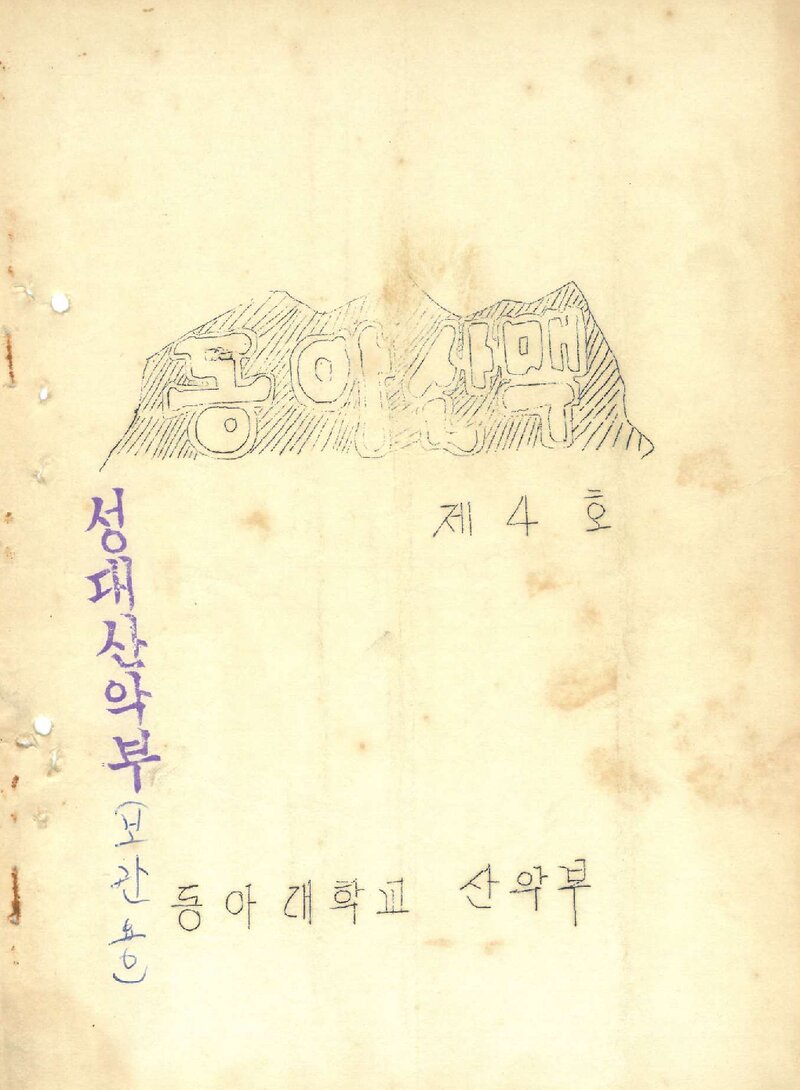 동아산맥
제 4 호
성대산악부 (보관용)
동아대학교 산악부